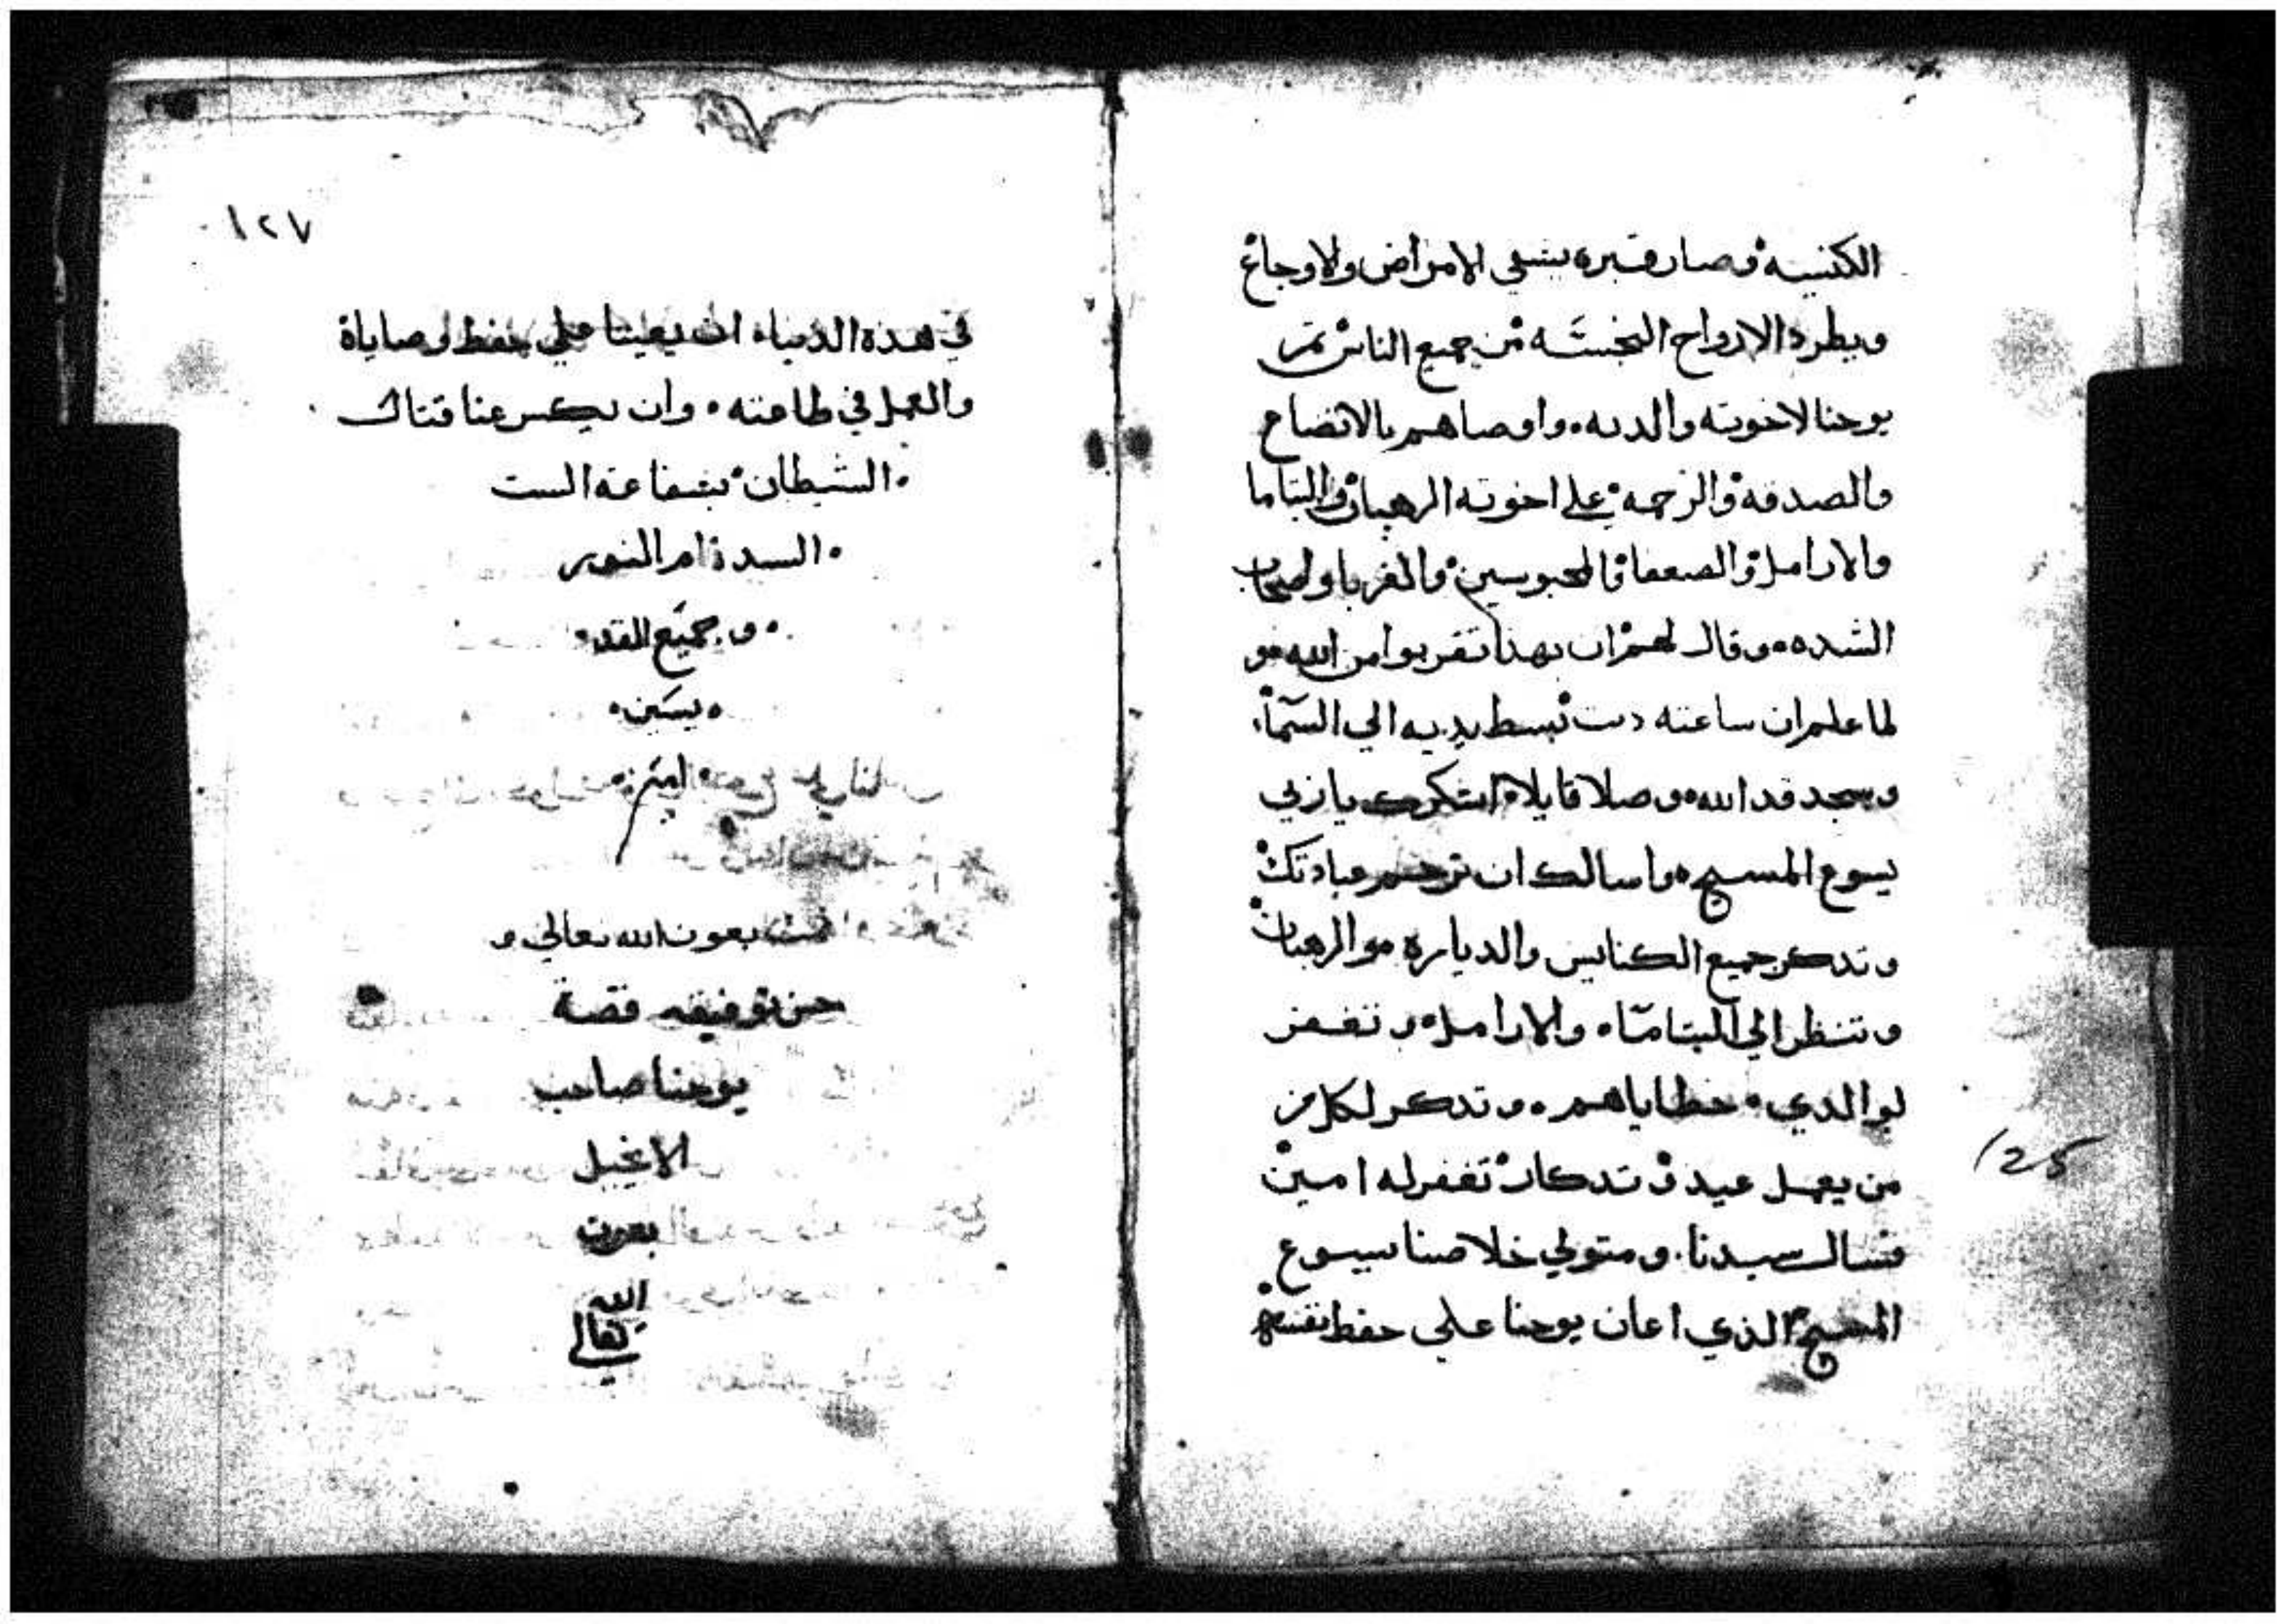 الكنيسه وصار قبره يشفي الامراض والاوجاع
ويطرد الارواح النجسه من جميع الناس ثم
يوحنا لاخوته والديه واوصاهم بالاتضاع
والصدقه والرحمه علي اخوته الرهبان واليتاما
والارامل والضعفا والمحبوسين والغربا واصحاب
الشده وقال لهم ان بهذا تقربوا من الله و
لما علم ان ساعته دنت بسط يديه الي السماء
وسجد قدا الله وصلا قايلا اشكرك يا ربي
يسوع المسيح واسالك ان ترحم عبادتك
وتدكر جميع الكنايس والدياره والرهبان
وتنظر الي اليتاما والارامل وتغفر
لوالدي خطاياهم وتدكر لكل من
من يعمل عيد وتدكار تغفر له امين
125
فنسال سيدنا ومتولي خلاصنا يسوع
المسيح الذي اعان يوحنا علي حفظ نفسه
١٢٧
في هذه الدنيا ان يعيننا علي حفظ وصاياه
والعمل في طاعته وان يكسر عنا قتال
الشيطان بشفاعة الست
السدة ام النور
وجميع القد
يسين
امين
تمت بعون الله تعالي و
حسن توفيقه قصة
يوحنا صاحب
الانجيل
بعون
الله
تعالي